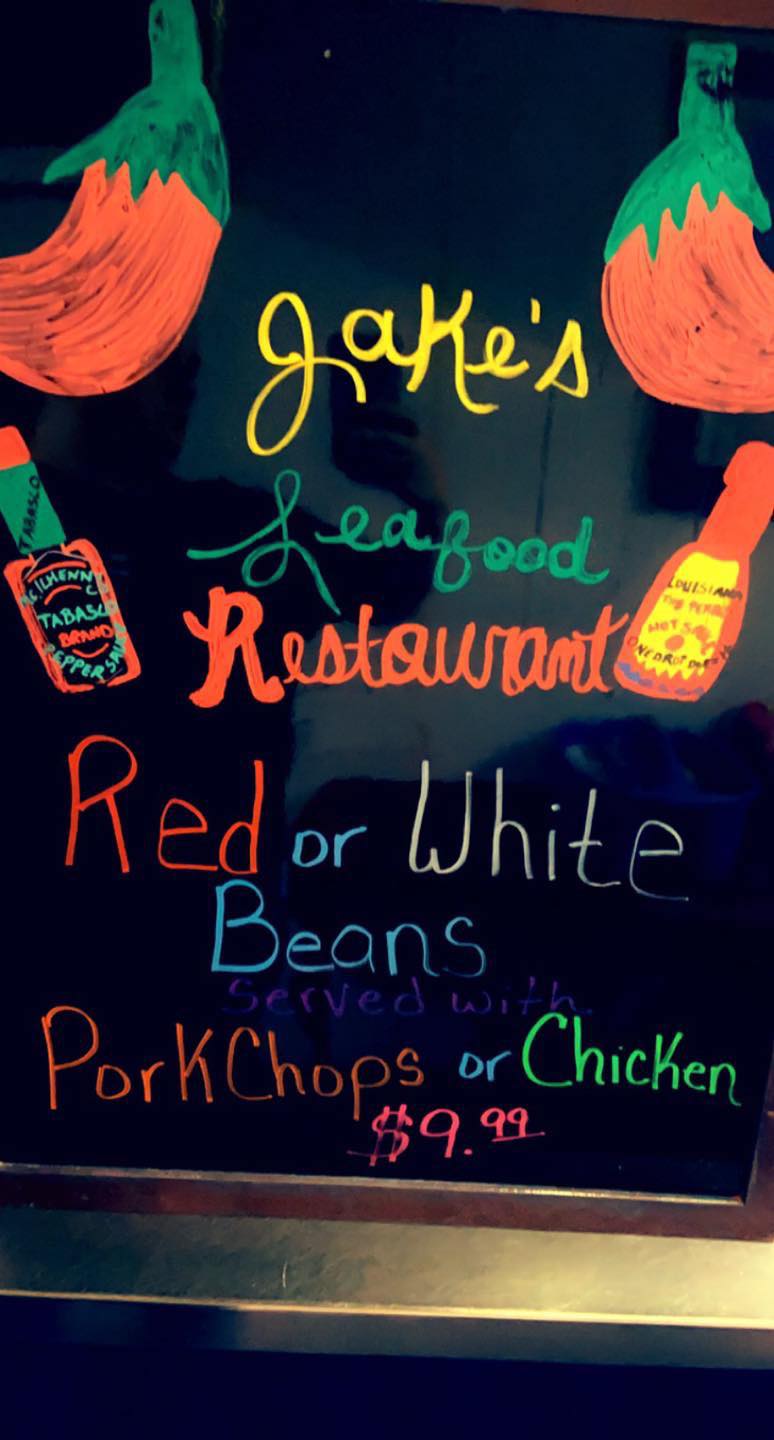 Jake's
Seafood
Restaurant
TABASCO
McILHENNY C
TABASCO
BRAND
PEPPER SAUCE
LOUISIANA
THE PERFECT
HOT SAUCE
ONE DROP DOES
Red or White
Beans
Served with
Pork Chops or Chicken
$9.99